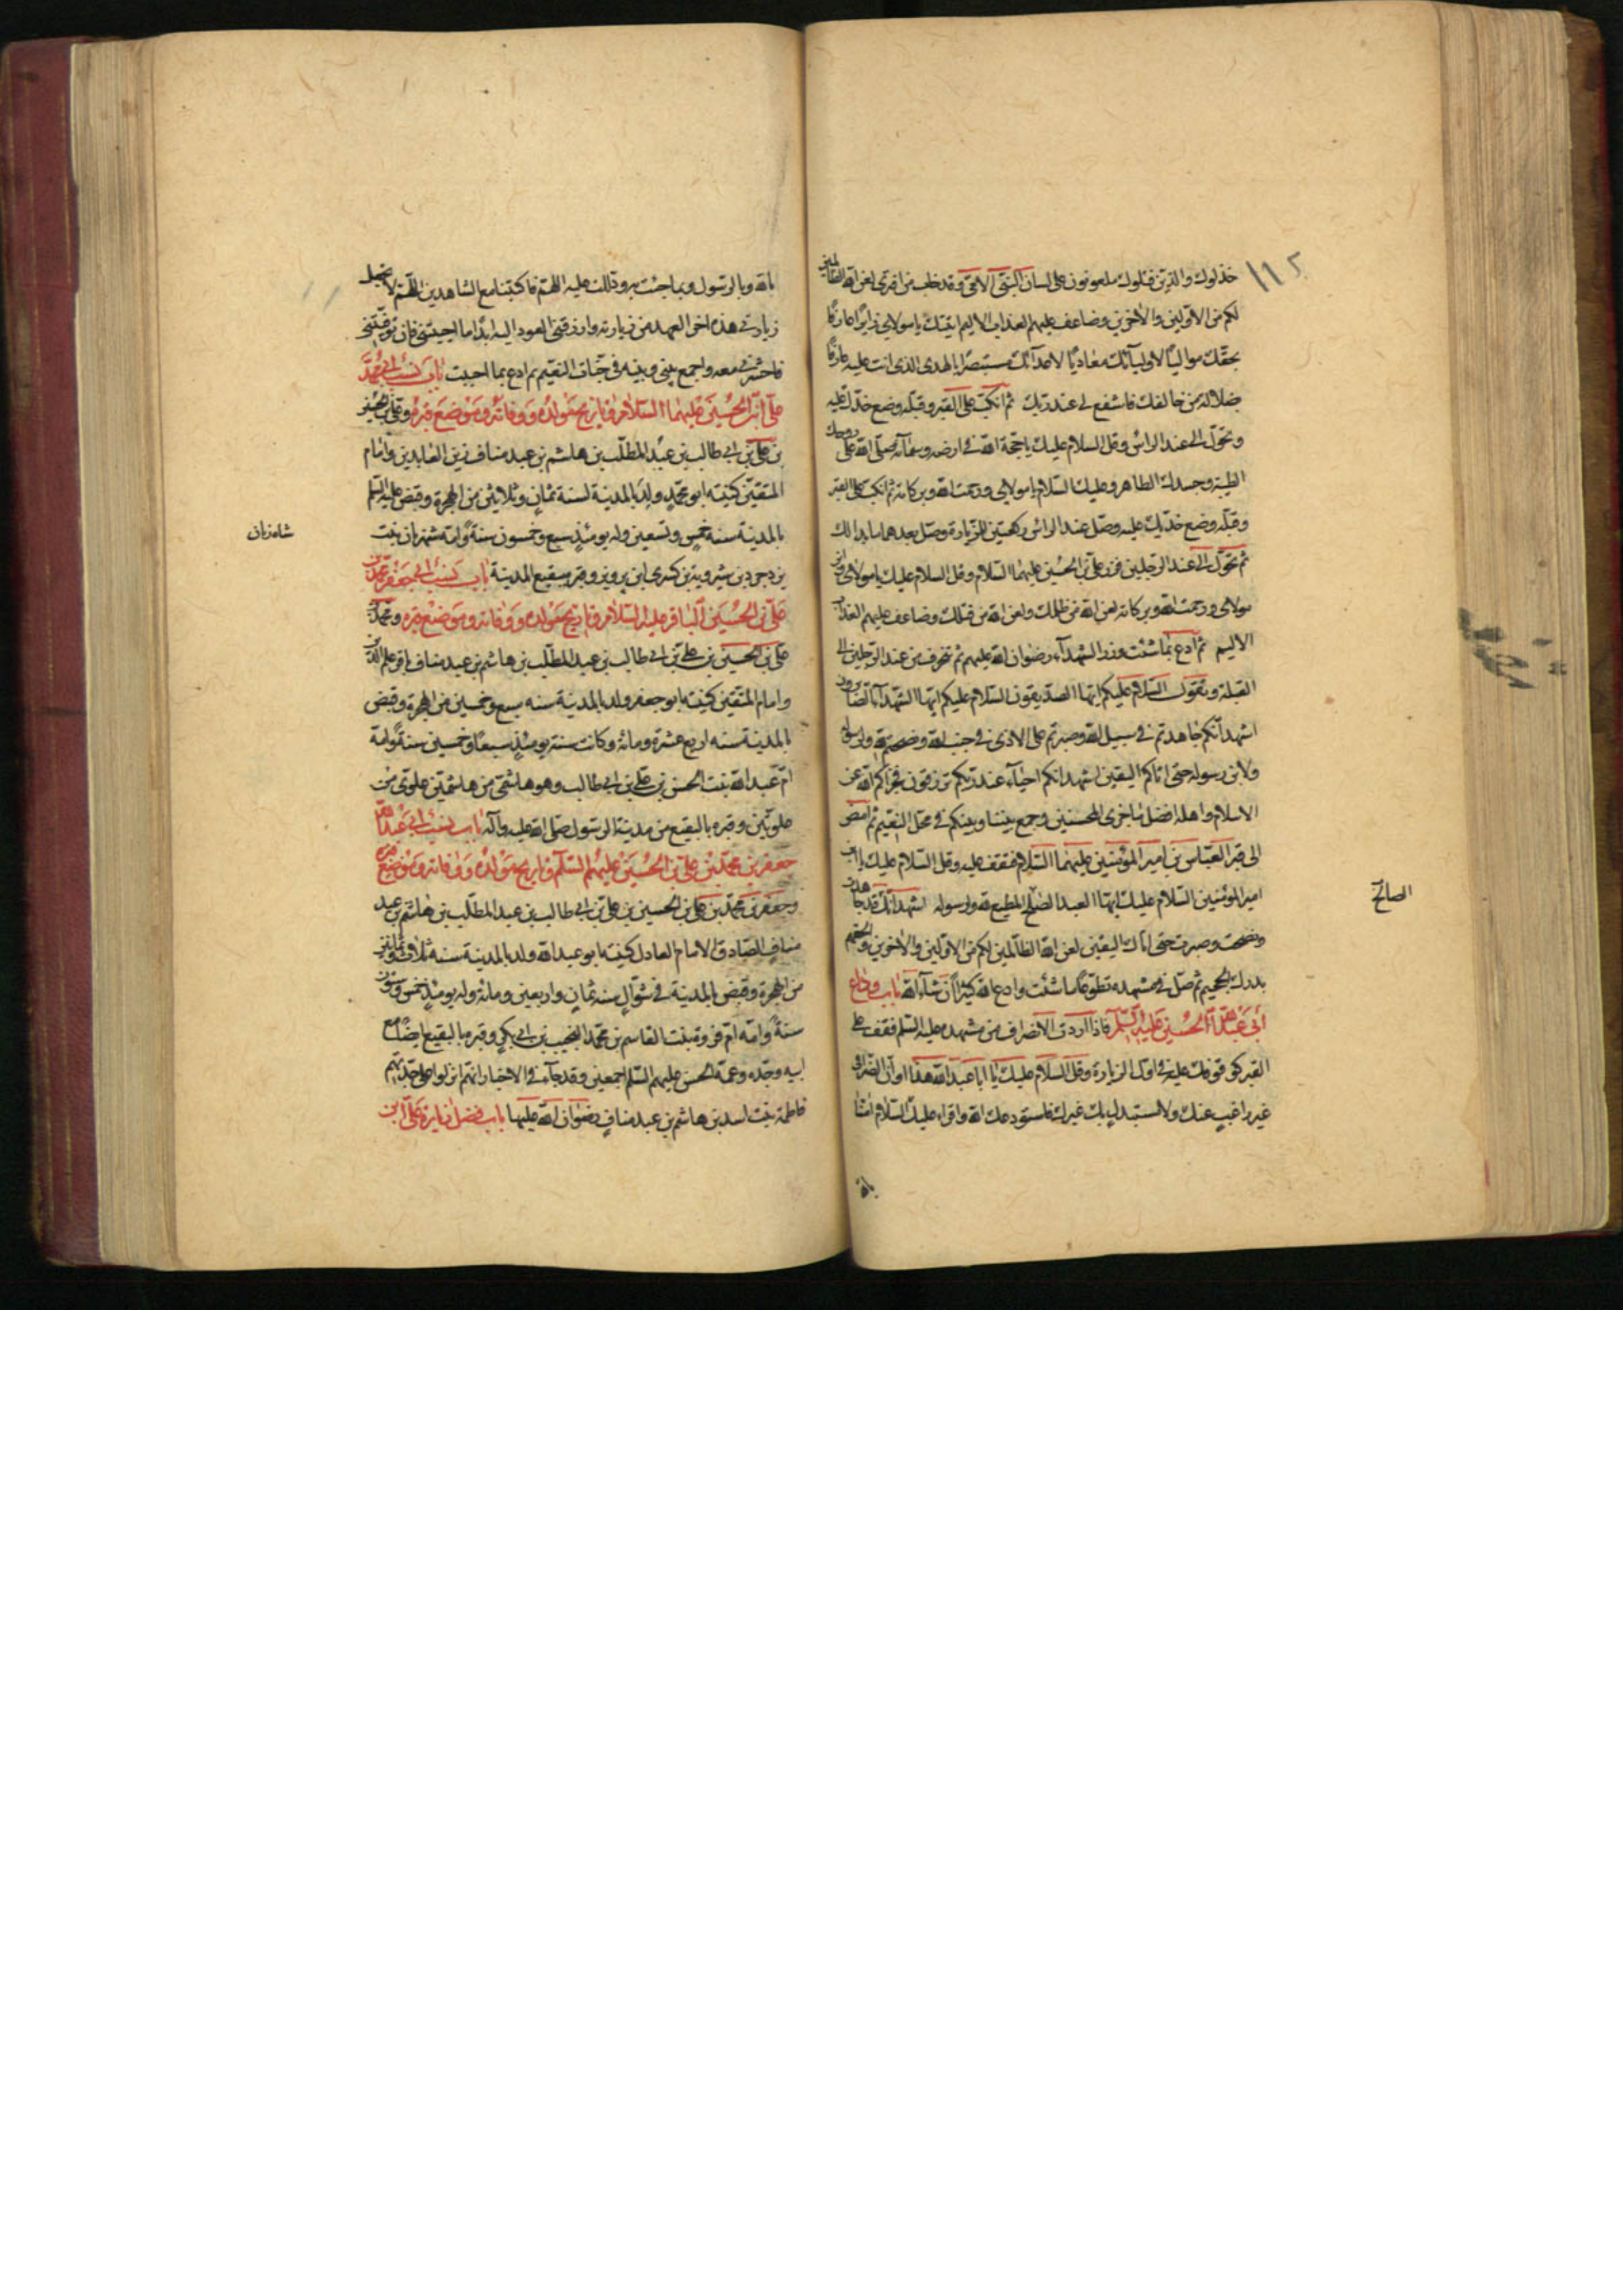 ١١٢
خذلوك والذين قتلوك ملعونون على لسان النبي الامي وقد خاب من افترى لعن الله الظالمين
لكم من الاولين والاخرين وضاعف عليهم العذاب الاليم اتيتك يا مولاي زايرا عارفا
بحقك مواليا لاوليائك معاديا لاعدائك مستبصرا بالهدى الذي انت عليه عارفا
بضلالة من خالفك فاشفع لي عند ربك ثم انكب على القبر وقبله وضع خدك عليه
وتحول الى عند الراس وقل السلام عليك يا حجة الله في ارضه وسمائه صلى الله على روحك
الطيبة وجسدك الطاهر وعليك السلام يا مولاي ورحمت الله وبركاته ثم انكب على القبر
وقبله وضع خديك عليه وصل عند الراس ركعتين للزيارة وصل بعدهما ما بدا لك
ثم تحول الى عند الرجلين فزر علي بن الحسين عليهما السلام وقل السلام عليك يا مولاي وابن
مولاي ورحمت الله وبركاته لعن الله من ظلمك ولعن الله من قتلك وضاعف عليهم العذاب
الاليم ثم ادع بما شئت وزر الشهداء رضوان الله عليهم ثم تنحرف من عند الرجلين الى
القبلة وتقول السلام عليكم ايها الصديقون السلام عليكم ايها الشهداء الصابرون
اشهد انكم جاهدتم في سبيل الله وصبرتم على الاذى في جنب الله ونصحتم لله ولرسوله
ولابن رسوله حتى اتاكم اليقين اشهد انكم احياء عند ربكم ترزقون فجزاكم الله عن
الاسلام واهله افضل ما جزى المحسنين وجمع بيننا وبينكم في محل النعيم ثم امض
الى قبر العباس بن امير المؤمنين عليهما السلام فقف عليه وقل السلام عليك يا ابن
امير المؤمنين السلام عليك ايها العبد الصلح المطيع لله ولرسوله اشهد انك قد جاهدت
الصالح
ونصحت وصبرت حتى اتاك اليقين لعن الله الظالمين لكم من الاولين والاخرين والحقهم
بدرك الجحيم ثم صل في مشهده تطوعا ما شئت وادع الله كثيرا ان شاء الله باب وداع
ابي عبد الله الحسين عليه السلم فاذا اردت الانصراف من مشهده عليه السلم فقف على
القبر كوقوفك عليه في اول الزيارة وقل السلام عليك يا ابا عبد الله هذا اوان انصرافي
غير راغب عنك ولا مستبدل بك غيرك فاستودعك الله واقراء عليك السلام امنا
بالله
بالله وبالرسول وبما جئت به ودللت عليه اللهم فاكتبنا مع الشاهدين اللهم لا تجعل
زيارتي هذه اخر العهد من زيارته وارزقني العود اليه ابدا ما احييتني فان توفيتني
فاحشرني معه واجمع بيني وبينه في جنات النعيم ثم ادع بما احببت باب نسب ابي محمد
علي بن الحسين عليهما السلام وتاريخ مولده ووفاته وموضع قبره وعلي بن الحسين
بن علي بن ابي طالب بن عبد المطلب بن هاشم بن عبد مناف زين العابدين وامام
المتقين كنيته ابو محمد ولد بالمدينة لسنة ثمان وثلاثين من الهجرة وقبض عليه السلم
بالمدينة سنة خمس وتسعين وله يومئذ سبع وخمسون سنة وامه شهزنان بنت
شاه زنان
يزدجرد بن شرويه بن كسرى ابن پرويز وقبره ببقيع المدينة باب نسب ابي جعفر محمد بن
علي بن الحسين الباقر عليه السلام وتاريخ مولده ووفاته وموضع قبره ومحمد بن
علي بن الحسين بن علي بن ابي طالب بن عبد المطلب بن هاشم بن عبد مناف باقر علم الدين
وامام المتقين كنيته ابو جعفر ولد بالمدينة سنه سبع وخمسين من الهجرة وقبض
بالمدينة سنه اربع عشرة ومائة وكانت سنه يومئذ سبعا وخمسين سنة وامه
ام عبد الله بنت الحسن بن علي بن ابي طالب وهو هاشمي من هاشميين علوي من
علويين وقبره بالبقيع من مدينة الرسول صلى الله عليه وآله باب نسب ابي عبد الله
جعفر بن محمد بن علي بن الحسين عليهم السلم وتاريخ مولده ووفاته وموضع قبره
وجعفر بن محمد بن علي بن الحسين بن علي بن ابي طالب بن عبد المطلب بن هاشم بن عبد
مناف الصادق الامام العادل كنيته ابو عبد الله ولد بالمدينة سنة ثلاث وثمانين
من الهجرة وقبض بالمدينة في شوال سنه ثمان واربعين ومائة وله يومئذ خمس وستون
سنة وامه ام فروة بنت القاسم بن محمد النجيب بن ابي بكر وقبره بالبقيع ايضا مع
ابيه وجده وعمه الحسن عليهم السلم اجمعين وقد جاء في الاخبار انهم انزلوا على جدتهم
فاطمة بنت اسد بن هاشم بن عبد مناف رضوان الله عليها باب فضل زيارة علي بن